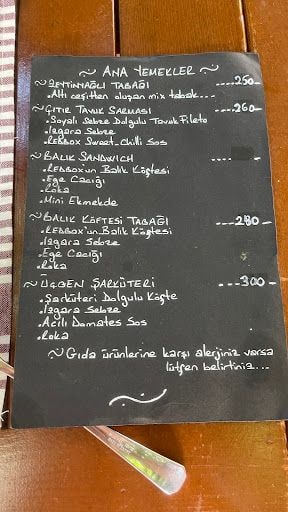 ~ ANA YEMEKLER ~
~ ZEYTİNYAĞLI TABAĞI ----250-
.Altı çeşitten oluşan mix tabak---
~ ÇITIR TAVUK SARMASI ----260-
.Soyalı Sebze Dolgulu Tavuk Fileto
.Izgara Sebze
.REDBOX Sweet-Chilli Sos
~ BALIK SANDWICH
.REDBOX'un Balık Köftesi
.Ege Cacığı
.Roka
.Mini Ekmekde
~ BALIK KÖFTESİ TABAĞI ---280-
.REDBOX'un Balık Köftesi
.Izgara Sebze
.Ege Cacığı
.Roka
~ ÜÇGEN ŞARKÜTERİ ---300-
.Şarküteri Dolgulu Köfte
.Izgara Sebze
.Acılı Domates Sos
.Roka
~ Gıda ürünlerine karşı alerjiniz varsa
lütfen belirtiniz...